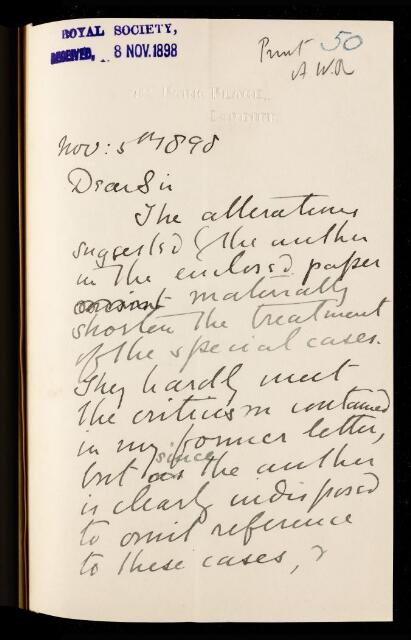 ROYAL SOCIETY,
RECEIVED, 8 NOV. 1898
Print 50
A W R
PARK PLACE,
Nov: 5th 1898
Dear Sir
The alterations
suggested by the author
in the enclosed paper
materially
shorten the treatment
of the special cases.
They hardly meet
the criticism contained
in my former letter,
but since the author
is clearly indisposed
to omit reference
to these cases, &